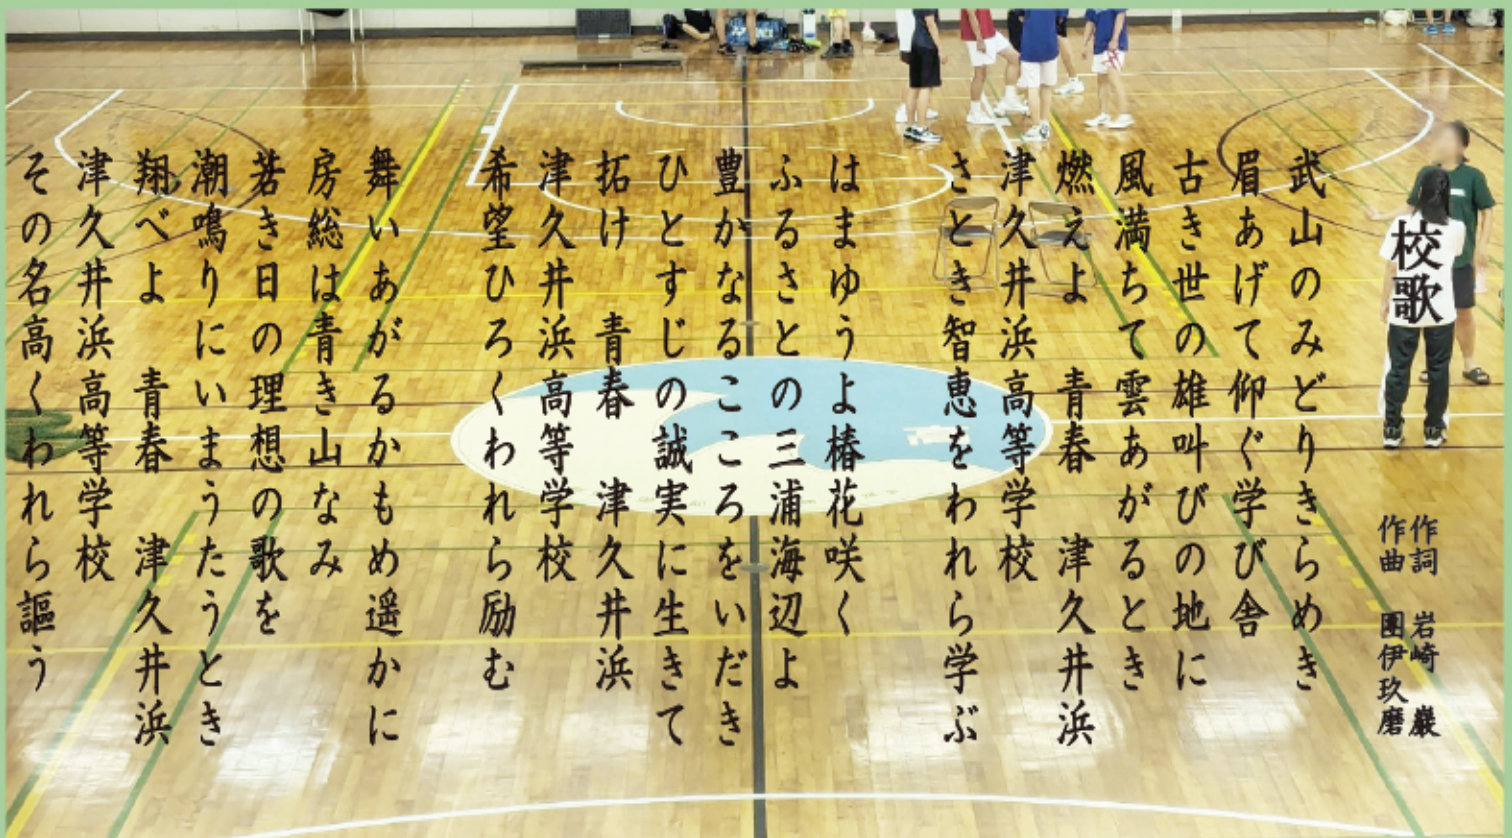 校歌
作詞 岩崎 巖
作曲 團伊玖磨
武山のみどりきらめき
眉あげて仰ぐ学び舎
古き世の雄叫びの地に
風満ちて雲あがるとき
燃えよ 青春 津久井浜
津久井浜高等学校
さとき智恵をわれら学ぶ
はまゆうよ椿花咲く
ふるさとの三浦海辺よ
豊かなるこころをいだき
ひとすじの誠実に生きて
拓け 青春 津久井浜
津久井浜高等学校
希望ひろくわれら励む
舞いあがるかもめ遥かに
房総は青き山なみ
若き日の理想の歌を
潮鳴りにいまうたうとき
翔べよ 青春 津久井浜
津久井浜高等学校
その名高くわれら謳う